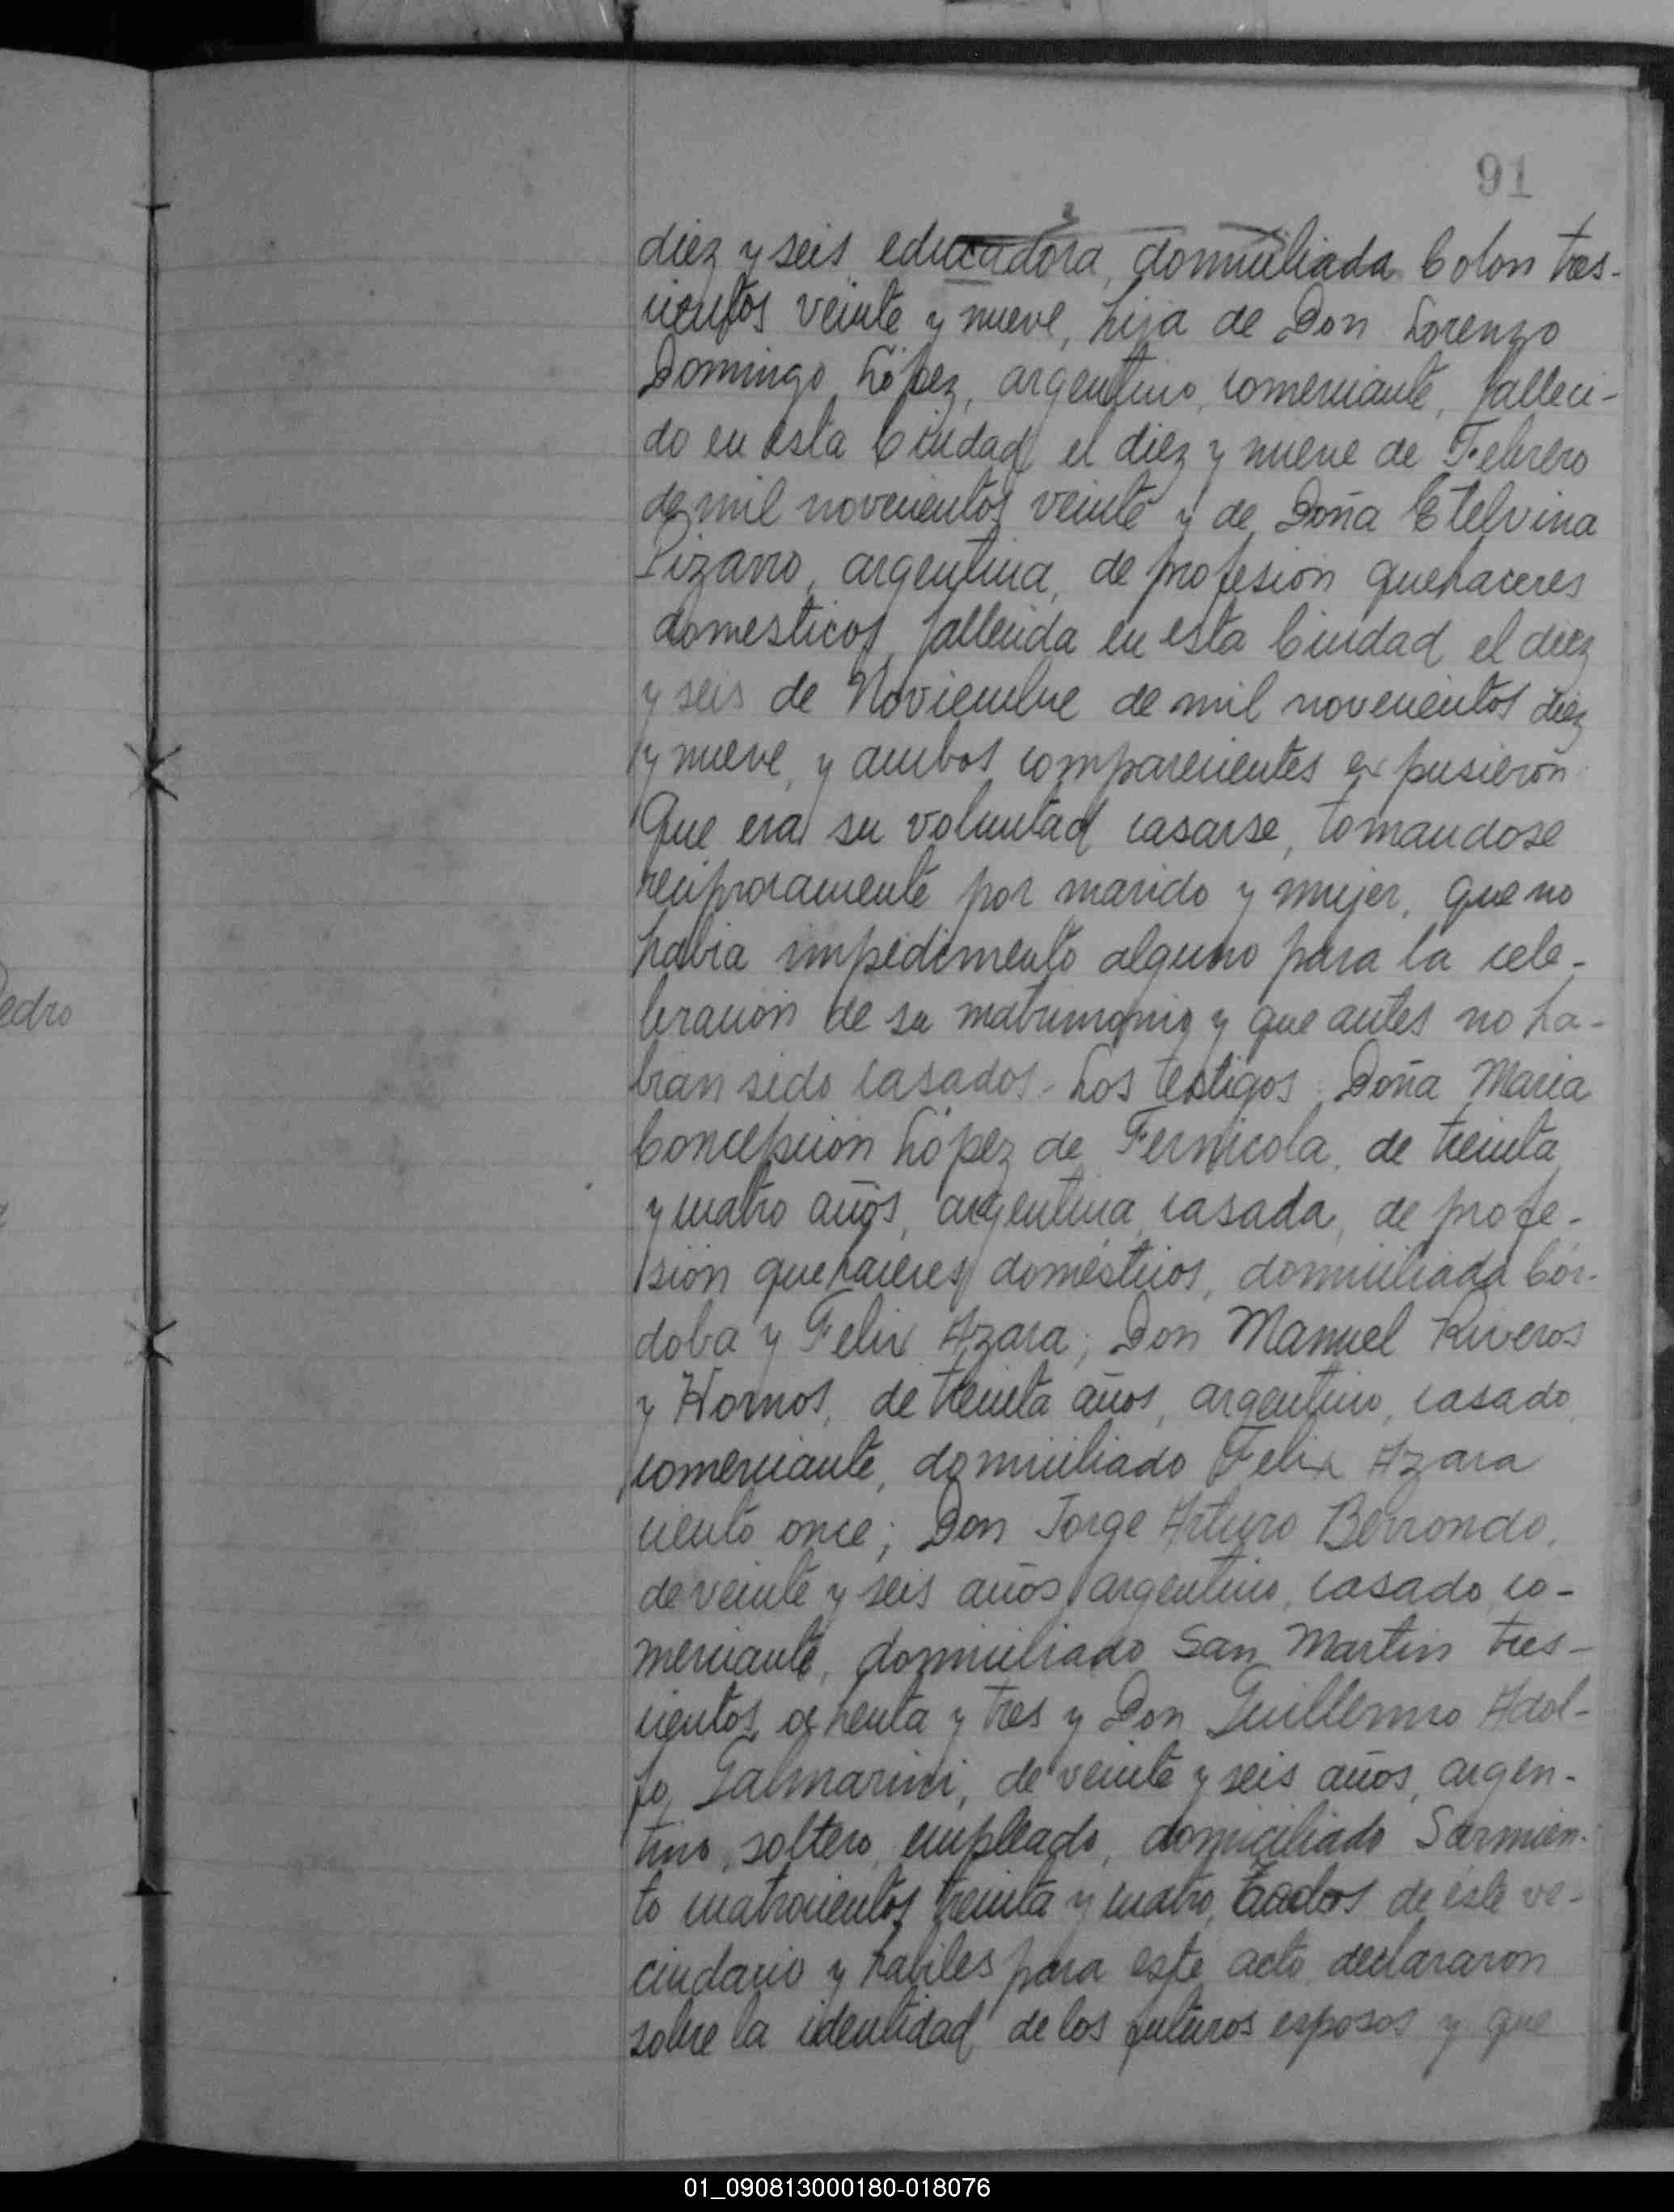 91
diez y seis, educadora, domiciliada Colon tres-
cientos veinte y nueve, hija de Don Lorenzo
Domingo López, argentino, comerciante, falleci-
do en esta Ciudad el diez y nueve de Febrero
de mil novecientos veinte y de Doña Etelvina
Pizarro, argentina, de profesión quehaceres
domesticos, fallecida en esta Ciudad el diez
y seis de Noviembre de mil novecientos diez
y nueve, y ambos comparecientes expusieron
Que era su voluntad casarse, tomandose
reciprocamente por marido y mujer, que no
habia impedimento alguno para la cele-
bración de su matrimonio y que antes no ha-
bian sido casados. Los testigos: Doña Maria
Concepción López de Fernicola, de treinta
y cuatro años, argentina, casada, de profe-
sión quehaceres domésticos, domiciliada Cór-
doba y Felix Azara; Don Manuel Riveros
y Hornos, de treinta años, argentino, casado,
comerciante, domiciliado Felix Azara
ciento once; Don Jorge Arturo Berrondo,
de veinte y seis años, argentino, casado, co-
merciante, domiciliado San Martin tres-
cientos ochenta y tres y Don Guillermo Adol-
fo Galmarini, de veinte y seis años, argen-
tino, soltero, empleado, domiciliado Sarmien-
to cuatrocientos treinta y cuatro, todos de este ve-
cindario y habiles para este acto, declararon
sobre la identidad de los futuros esposos y que
edro
01_090813000180-018076